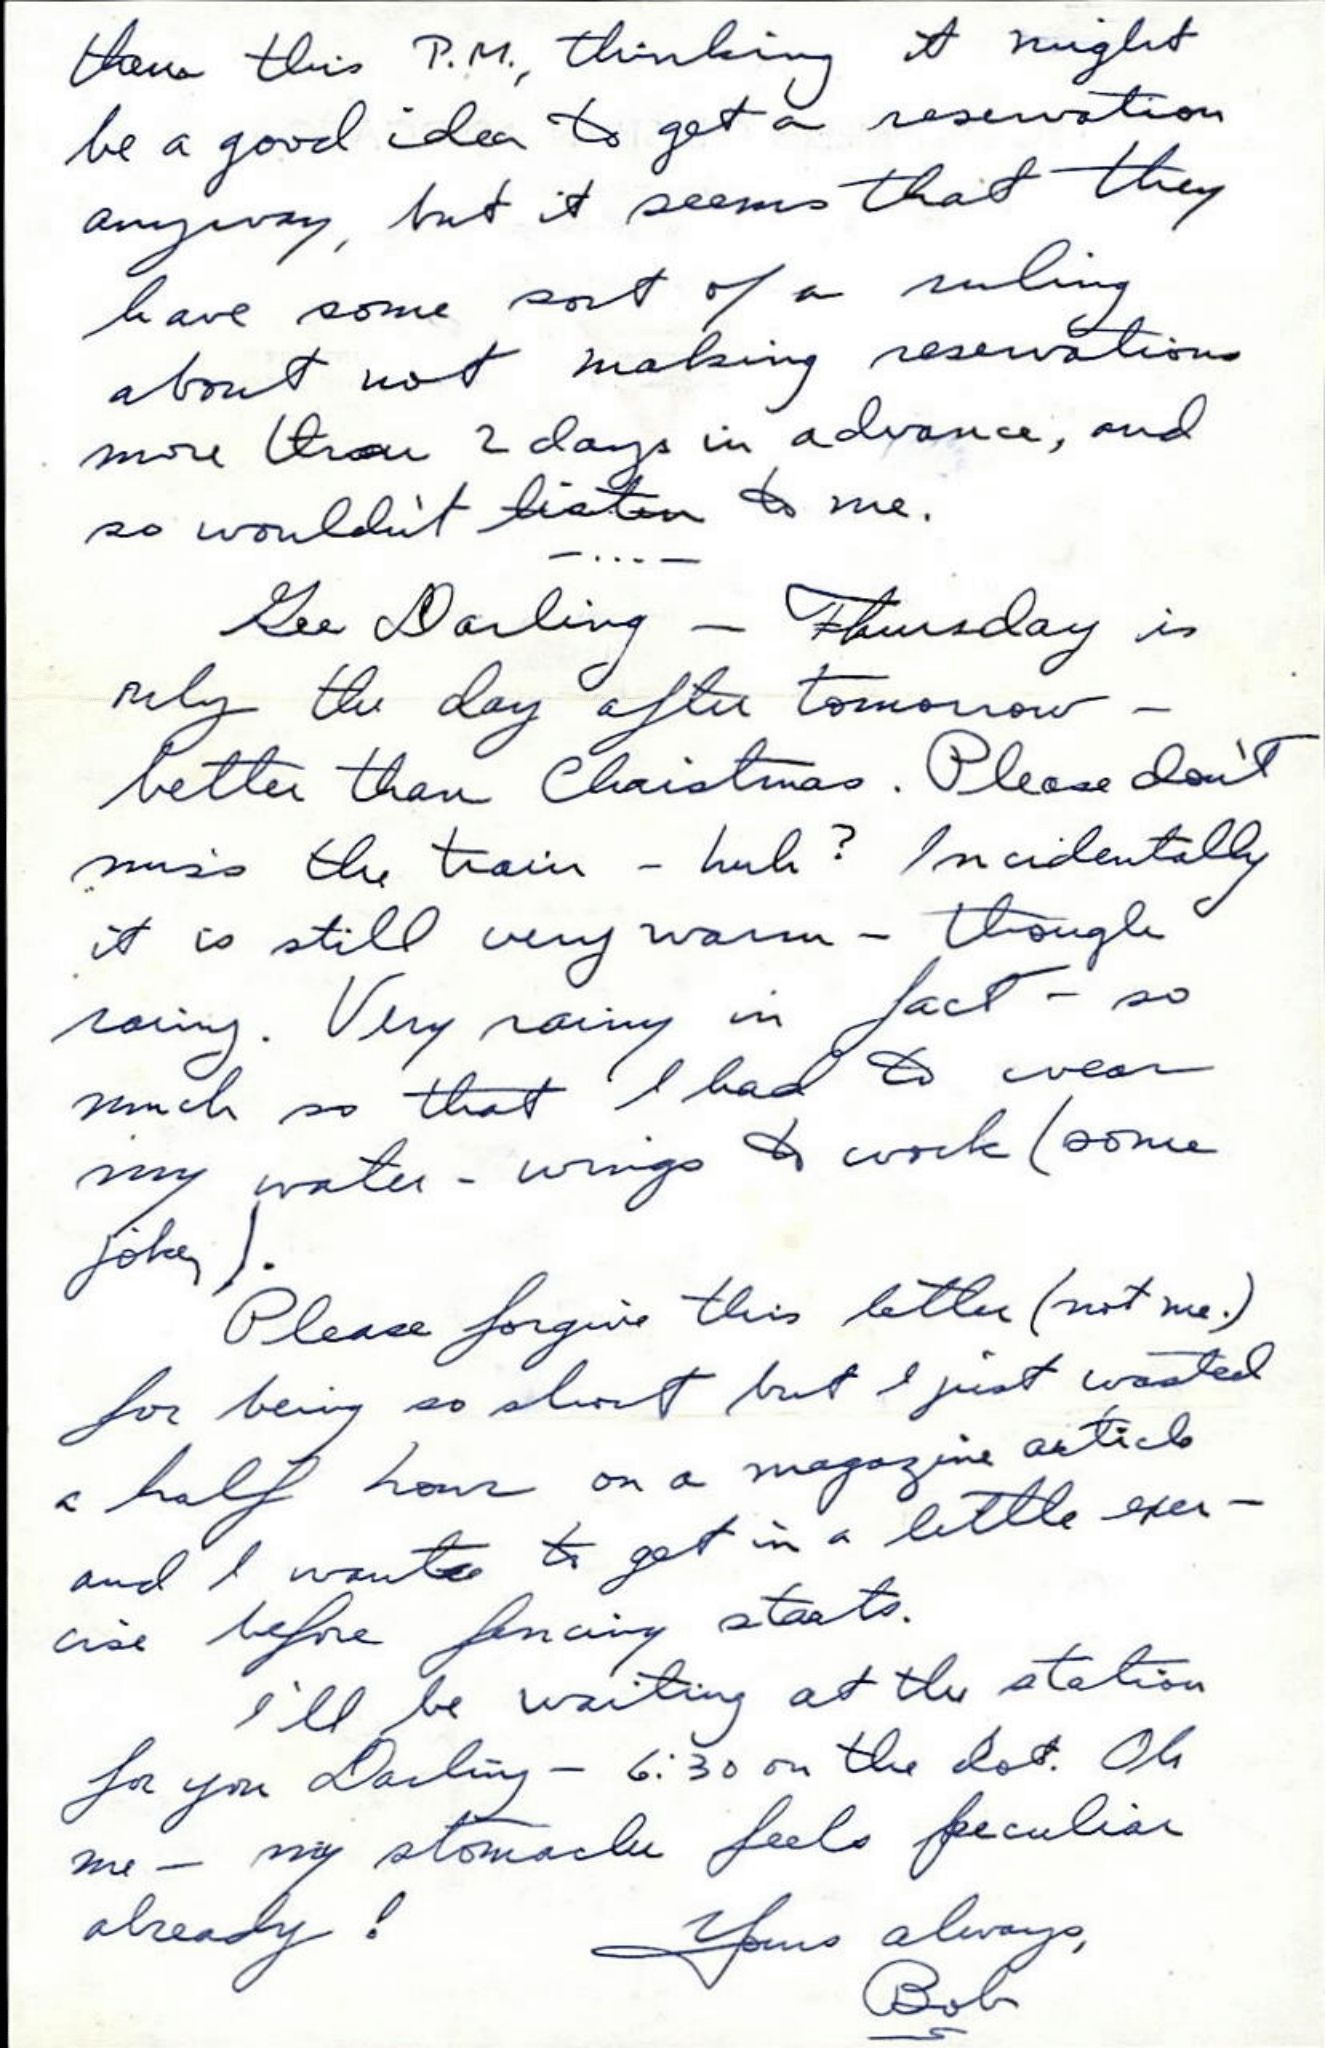 them this P.M., thinking it might
be a good idea to get a reservation
anyway, but it seems that they
have some sort of a ruling
about not making reservations
more than 2 days in advance, and
so wouldn't listen to me.
– . . . –
Gee Darling – Thursday is
only the day after tomorrow –
better than Christmas. Please don't
miss the train – huh? Incidentally
it is still very warm – though
rainy. Very rainy in fact – so
much so that I had to wear
my water-wings to work (some
joke, ).
Please forgive this letter (not me.)
for being so short but I just wasted
a half hour on a magazine article
and I want to get in a little exer-
cise before fencing starts.
I'll be waiting at the station
for you Darling – 6:30 on the dot. Oh
me – my stomach feels peculiar
already!
Yours always,
Bob